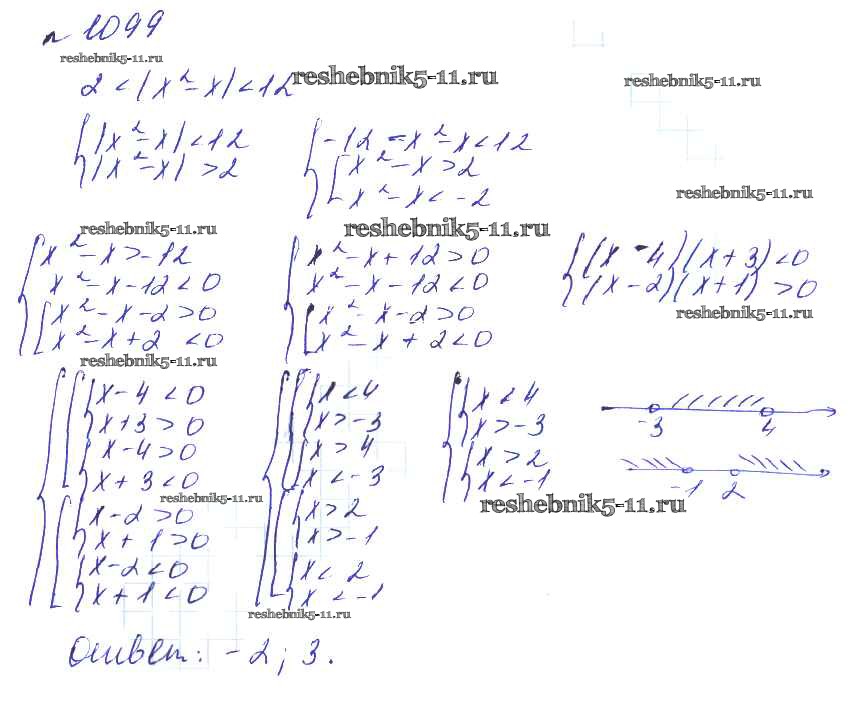 n 1099
reshebnik5-11.ru
2 < |x² - x| < 12 reshebnik5-11.ru
reshebnik5-11.ru
{ |x² - x| < 12
|x² - x| > 2
{ -12 = x² - x < 12
[ x² - x > 2
x² - x < -2
reshebnik5-11.ru
reshebnik5-11.ru reshebnik5-11.ru
{ x² - x > -12
x² - x - 12 < 0
[ x² - x - 2 > 0
x² - x + 2 < 0
{ x² - x + 12 > 0
x² - x - 12 < 0
[ x² - x - 2 > 0
x² - x + 2 < 0
{ (x - 4)(x + 3) < 0
(x - 2)(x + 1) > 0
reshebnik5-11.ru
reshebnik5-11.ru
{ [ { x - 4 < 0
x + 3 > 0
{ x - 4 > 0
x + 3 < 0
reshebnik5-11.ru
[ { x - 2 > 0
x + 1 > 0
{ x - 2 < 0
x + 1 < 0
{ [ { x < 4
x > -3
{ x > 4
x < -3
[ { x > 2
x > -1
{ x < 2
x < -1
reshebnik5-11.ru
{ { x < 4
x > -3
{ x > 2
x < -1
-3 4
-1 2
reshebnik5-11.ru
Ответ: -2; 3.